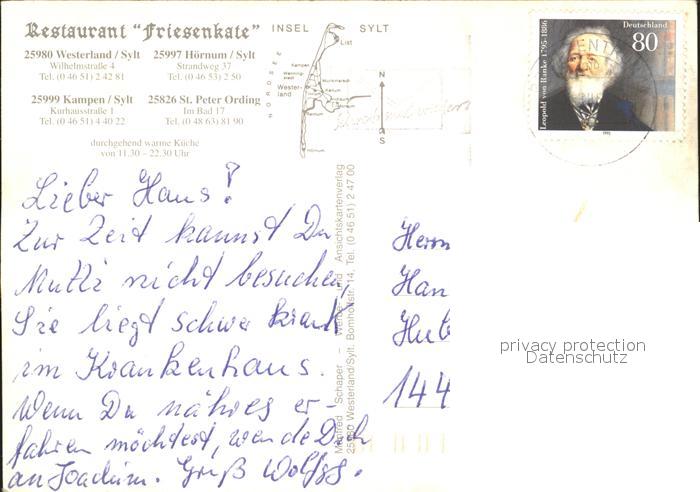 Restaurant "Friesenkate"
25980 Westerland / Sylt
Wilhelmstraße 4
Tel. (0 46 51) 2 42 81
25997 Hörnum / Sylt
Strandweg 37
Tel. (0 46 53) 2 50
25999 Kampen / Sylt
Kurhausstraße 1
Tel. (0 46 51) 4 40 22
25826 St. Peter Ording
Im Bad 17
Tel. (0 48 63) 81 90
durchgehend warme Küche
von 11.30 – 22.30 Uhr
INSEL SYLT
NORDSEE
List
Kampen
Wester-
land
Hörnum
N
S
Deutschland
80
Leopold von Ranke 1795-1886
Manfred Schaper - Werbe- und Ansichtskartenverlag
25980 Westerland/Sylt. Bomhoffstr. 14. Tel. (0 46 51) 2 47 00
Lieber Hans!
Zur Zeit kannst Du
Mutti nicht besuchen,
Sie liegt schwer krank
im Krankenhaus.
Wenn Du nähres er-
fahren möchtest, wende Dich
an Joachim. Gruß Wolfg.
Herrn
Han
Hub
144
privacy protection
Datenschutz